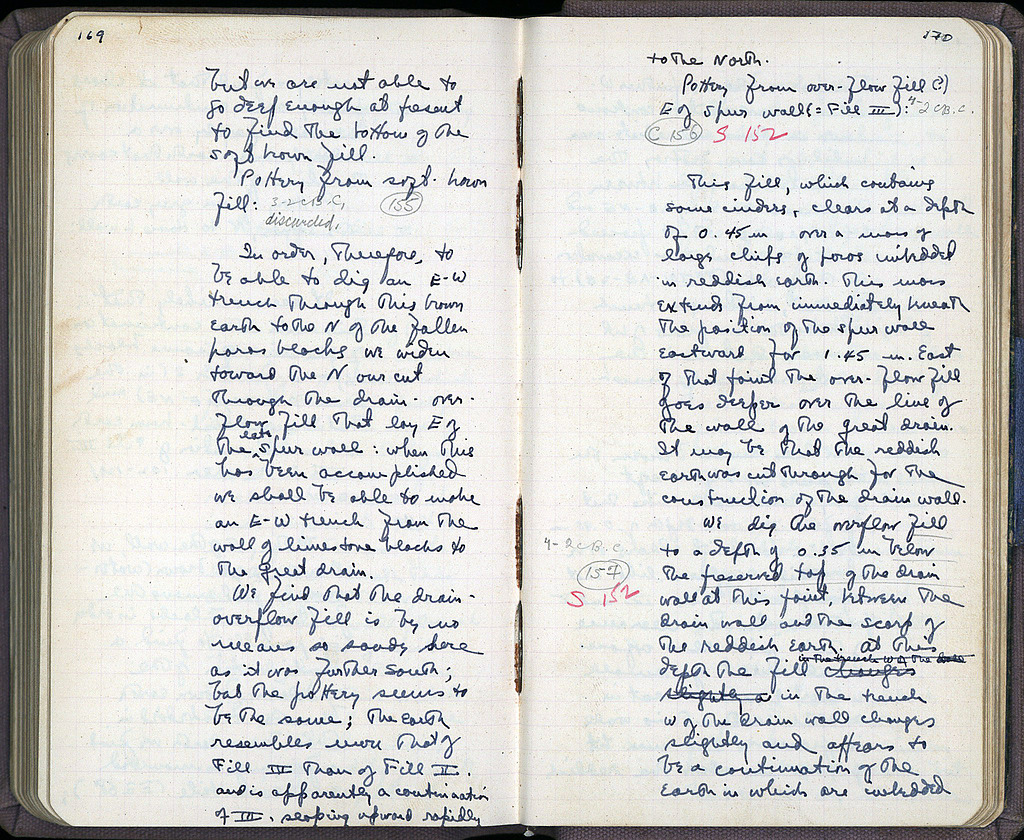 169
but we are not able to
go deep enough at present
to find the bottom of the
soft brown fill.
Pottery from soft brown
fill: 3-2 c B.C. (155)
discarded.
In order, therefore, to
be able to dig an E-W
trench through this brown
earth to the N of the fallen
poros blocks we widen
toward the N our cut
through the drain-over-
flow fill that lay E of
the late spur wall: when this
has been accomplished
we shall be able to make
an E-W trench from the
wall of limestone blocks to
the great drain.
We find that the drain-
overflow fill is by no
means so sandy here
as it was further south;
but the pottery seems to
be the same; the earth
resembles more that of
Fill III than of Fill II.
and is apparently a continuation
of III. sloping upward rapidly
170
to the North.
Pottery from over-flow fill (?)
E of spur wall (= Fill III): 4-2 c B.C.
C 156 S 152
This fill, which contains
some cinders, clears at a depth
of 0.45 m over a mass of
large chips of poros imbedded
in reddish earth. This mass
extends from immediately beneath
the position of the spur wall
eastward for 1.45 m. East
of that point the over-flow fill
goes deeper over the line of
the wall of the great drain.
It may be that the reddish
earth was cut through for the
construction of the drain wall.
We dig the overflow fill
4-2 c B.C.
to a depth of 0.35 m below
157
the preserved top of the drain
S 152
wall at this point, between the
drain wall and the scarp of
the reddish earth. At this
in the trench W of the
depth the fill changes
slightly in the trench
W of the drain wall changes
slightly and appears to
be a continuation of the
earth in which are imbedded